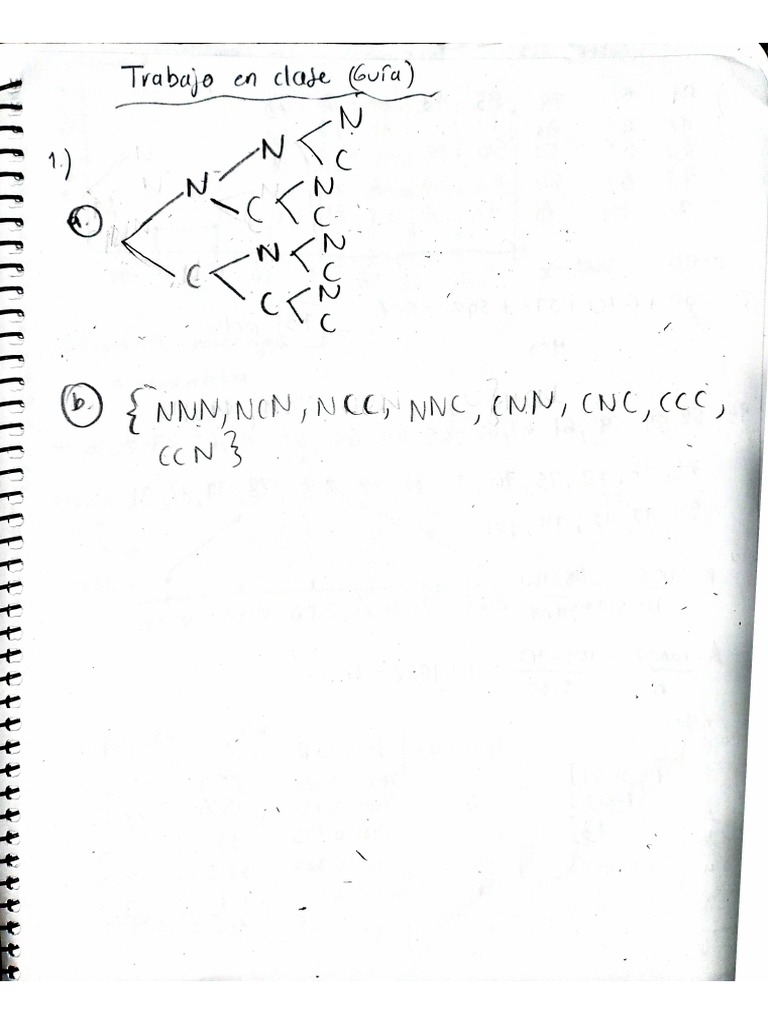 Trabajo en clase (Guía)
1.)
N
N
C
N
N
a.
C
C
N
N
C
C
N
C
C
b. { NNN, NCN, NCC, NNC, CNN, CNC, CCC,
CCN }